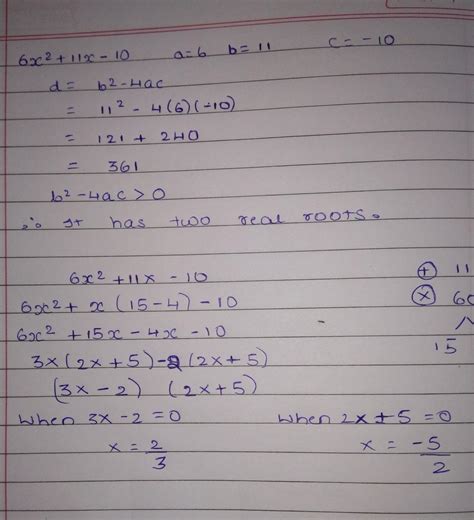 6x² + 11x - 10 a = 6 b = 11 c = -10
d = b² - 4ac
= 11² - 4(6)(-10)
= 121 + 240
= 361
b² - 4ac > 0
∴ It has two real roots.
6x² + 11x - 10
6x² + x(15 - 4) - 10
6x² + 15x - 4x - 10
3x(2x + 5) - 2(2x + 5)
(3x - 2) (2x + 5)
When 3x - 2 = 0
x = 2/3
⊕ 11
⊗ 60
15
When 2x + 5 = 0
x = -5/2